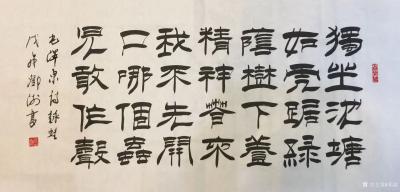 獨坐池塘
如虎踞綠
蔭樹下養
精神春來
我不先開
口哪個蟲
兒敢作聲
毛澤東詩詠蛙
戊戌